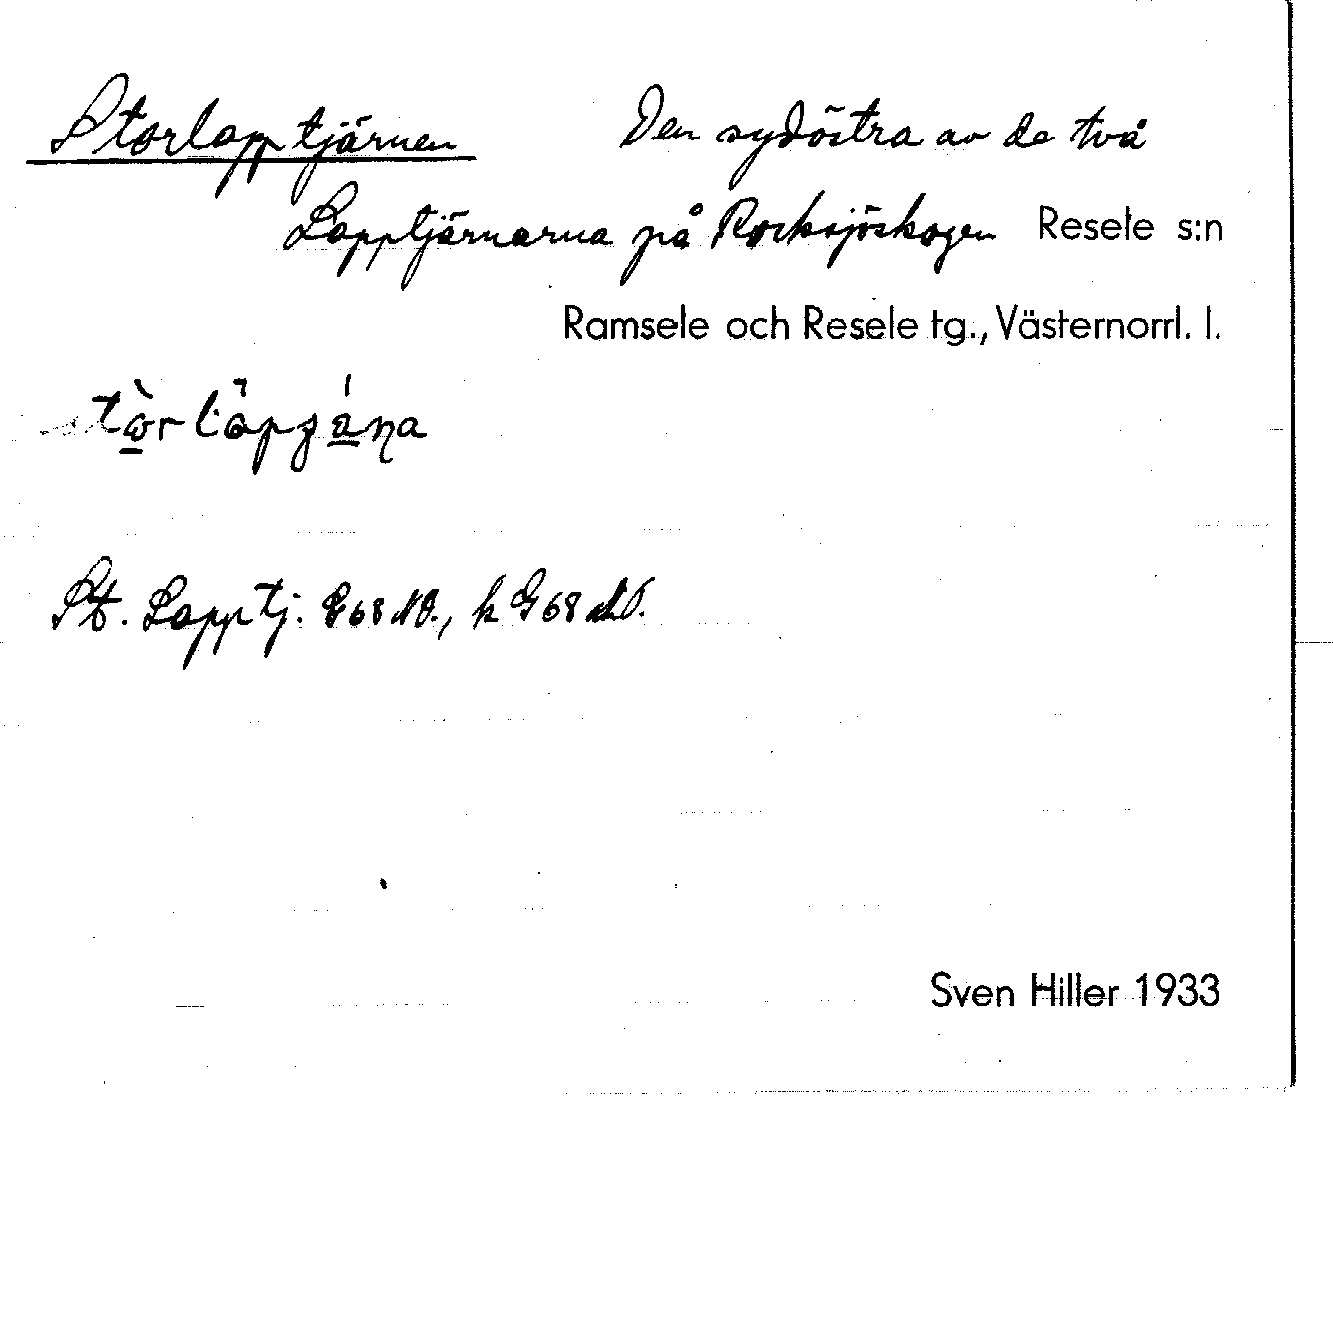 Storlapptjärnen Den sydöstra av de två
Lapptjärnarna på Rocksjöskogen Resele s:n
Ramsele och Resele tg., Västernorrl. l.
St. Lapptj. G68 NO., k G68 NO.
Sven Hiller 1933